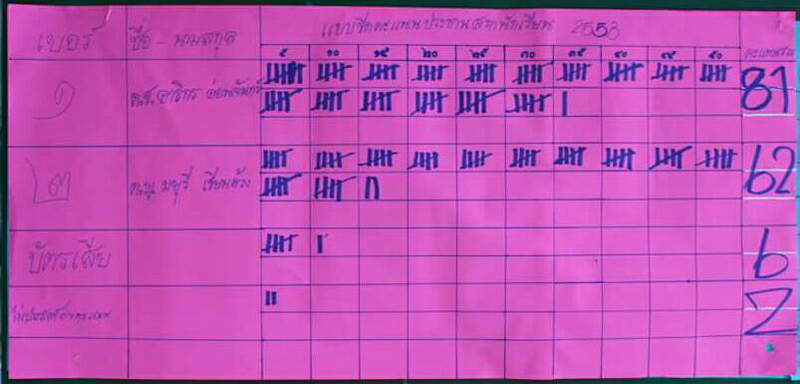 แบบขีดคะแนนประธานสภานักเรียน 2558
เบอร์ ชื่อ - นามสกุล คะแนนรวม
๕ ๑๐ ๑๕ ๒๐ ๒๕ ๓๐ ๓๕ ๔๐ ๔๕ ๕๐
๑ ด.ช. 81
๒ ด.ญ. มยุรี 62
บัตรเสีย 6
ไม่ประสงค์ลงคะแนน 2